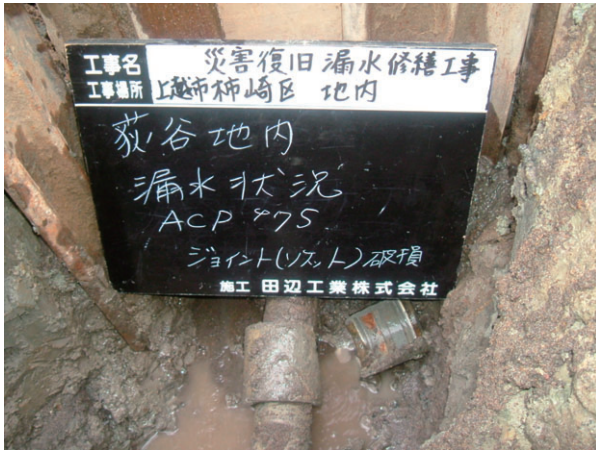 工事名 災害復旧漏水修繕工事
工事場所 上越市柿崎区 地内
荻谷地内
漏水状況
ACP φ75
ジョイント(ソケット)破損
施工 田辺工業株式会社